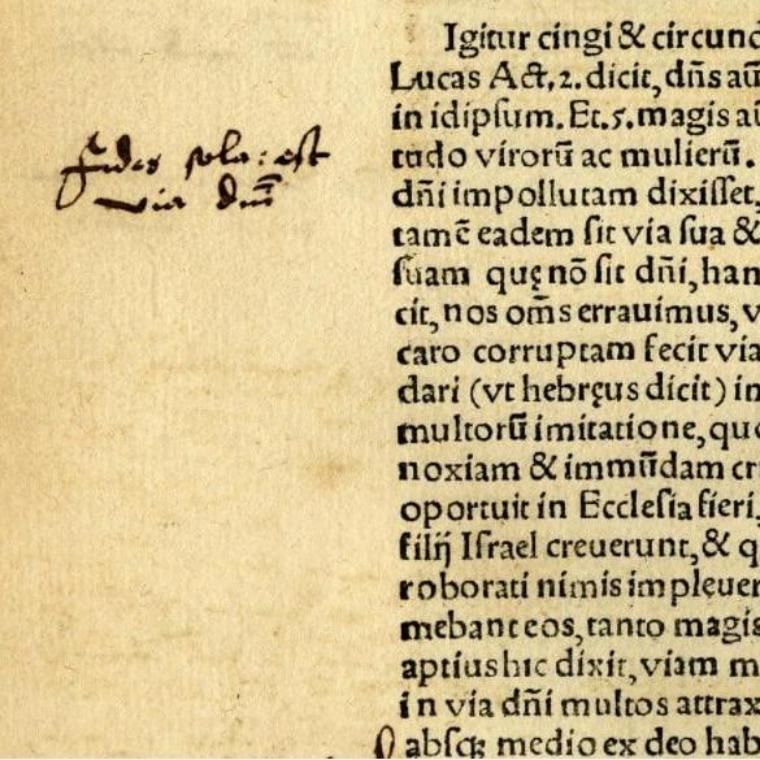 fides sola: est
via dñi
Igitur cingi & circund
Lucas Act. 2. dicit, dñs aũ
in idipſum. Et. 5. magis aũ
tudo virorũ ac mulierũ.
dñi impollutam dixiſſet,
tamẽ eadem ſit via ſua &
ſuam quę nõ ſit dñi, han
cit, nos om̃s errauimus, v
caro corruptam fecit via
dari (vt hebręus dicit) in
multorũ imitatione, quo
noxiam & immũdam cr
oportuit in Eccleſia fieri,
filij Iſrael creuerunt, & q
roborati nimis impleuer
mebant eos, tanto magis
aptius hic dixit, viam m
in via dñi multos attrax
abſqꝫ medio ex deo hab